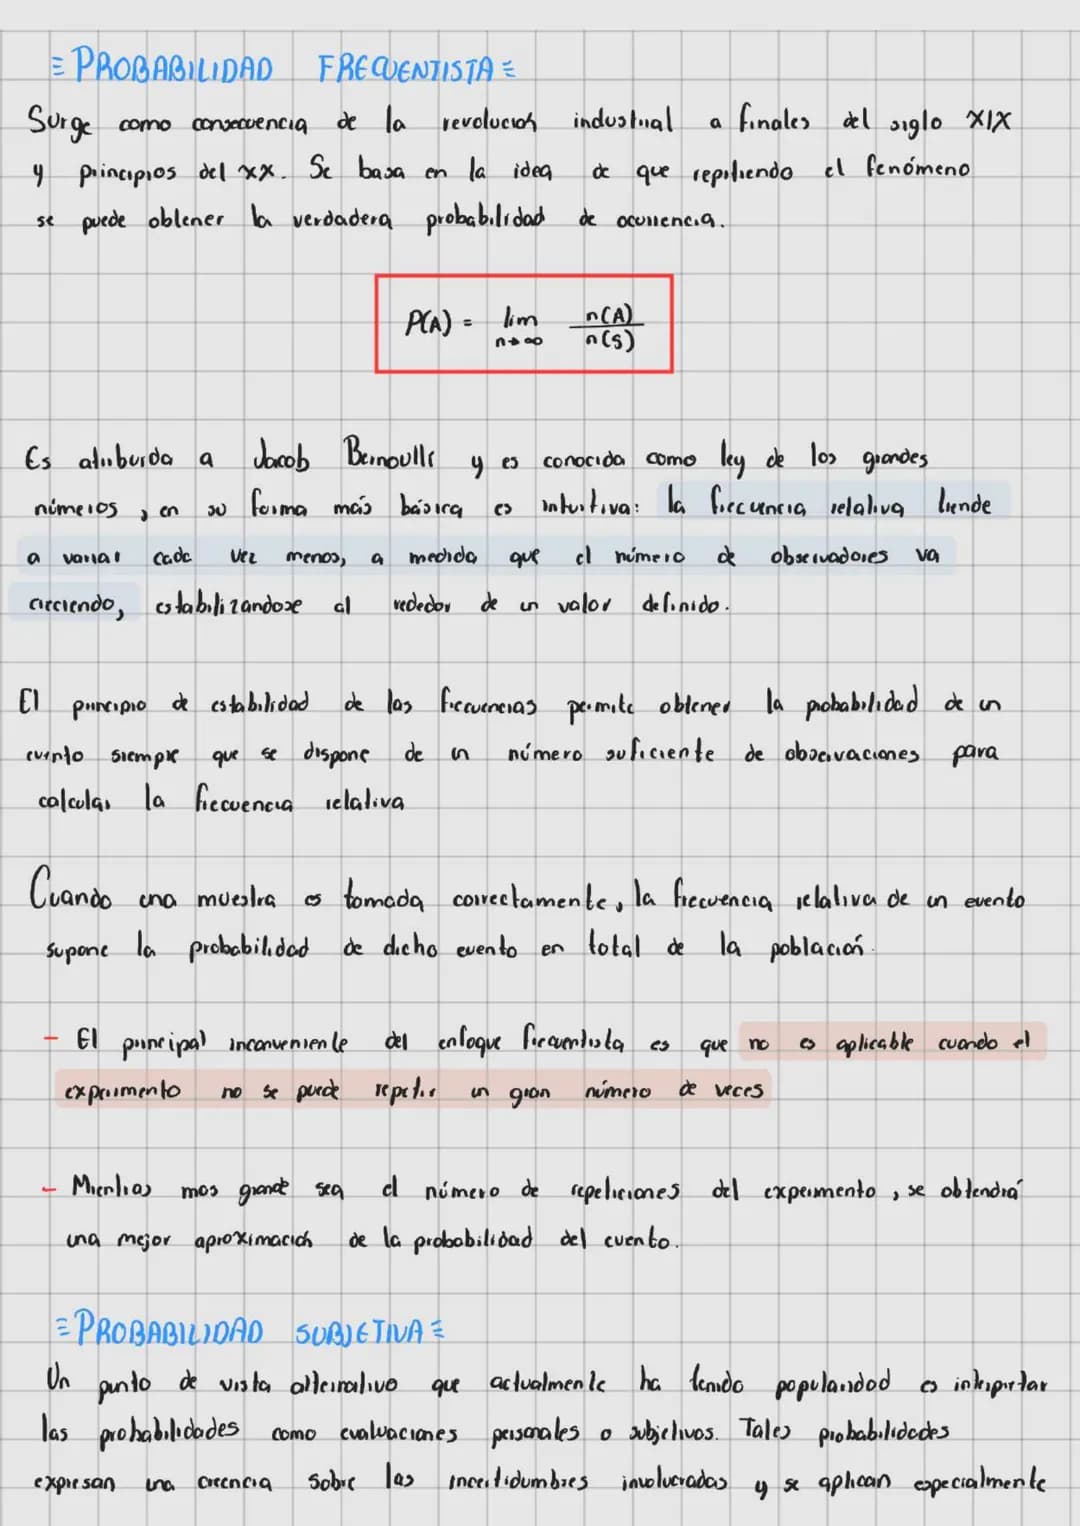 PROBABILIDAD FRECUENTISTA
Surge como consecuencia de la revolución industrial a finales del siglo XIX
y principios del XX. Se basa en la idea de que repitiendo el fenómeno
se puede obtener la verdadera probabilidad de ocurrencia.
P(A) = lim n→∞ n(A)/n(S)
Es atribuida a Jacob Bernoulli y es conocida como ley de los grandes
números, en su forma más básica es intuitiva: la frecuencia relativa tiende
a variar cada vez menos, a medida que el número de observadores va
creciendo, estabilizandose al rededor de un valor definido.
El principio de estabilidad de las frecuencias permite obtener la probabilidad de un
evento siempre que se dispone de un número suficiente de observaciones para
calcular la frecuencia relativa
Cuando una muestra es tomada correctamente, la frecuencia relativa de un evento
supone la probabilidad de dicho evento en total de la población.
- El principal inconveniente del enfoque frecuentista es que no es aplicable cuando el
experimento no se puede repetir un gran número de veces
- Mientras mas grande sea el número de repeticiones del experimento, se obtendrá
una mejor aproximación de la probabilidad del evento.
PROBABILIDAD SUBJETIVA
Un punto de vista alternativo que actualmente ha tenido popularidad es interpretar
las probabilidades como evaluaciones personales o subjetivas. Tales probabilidades
expresan una creencia sobre las incertidumbres involucradas y se aplican especialmente